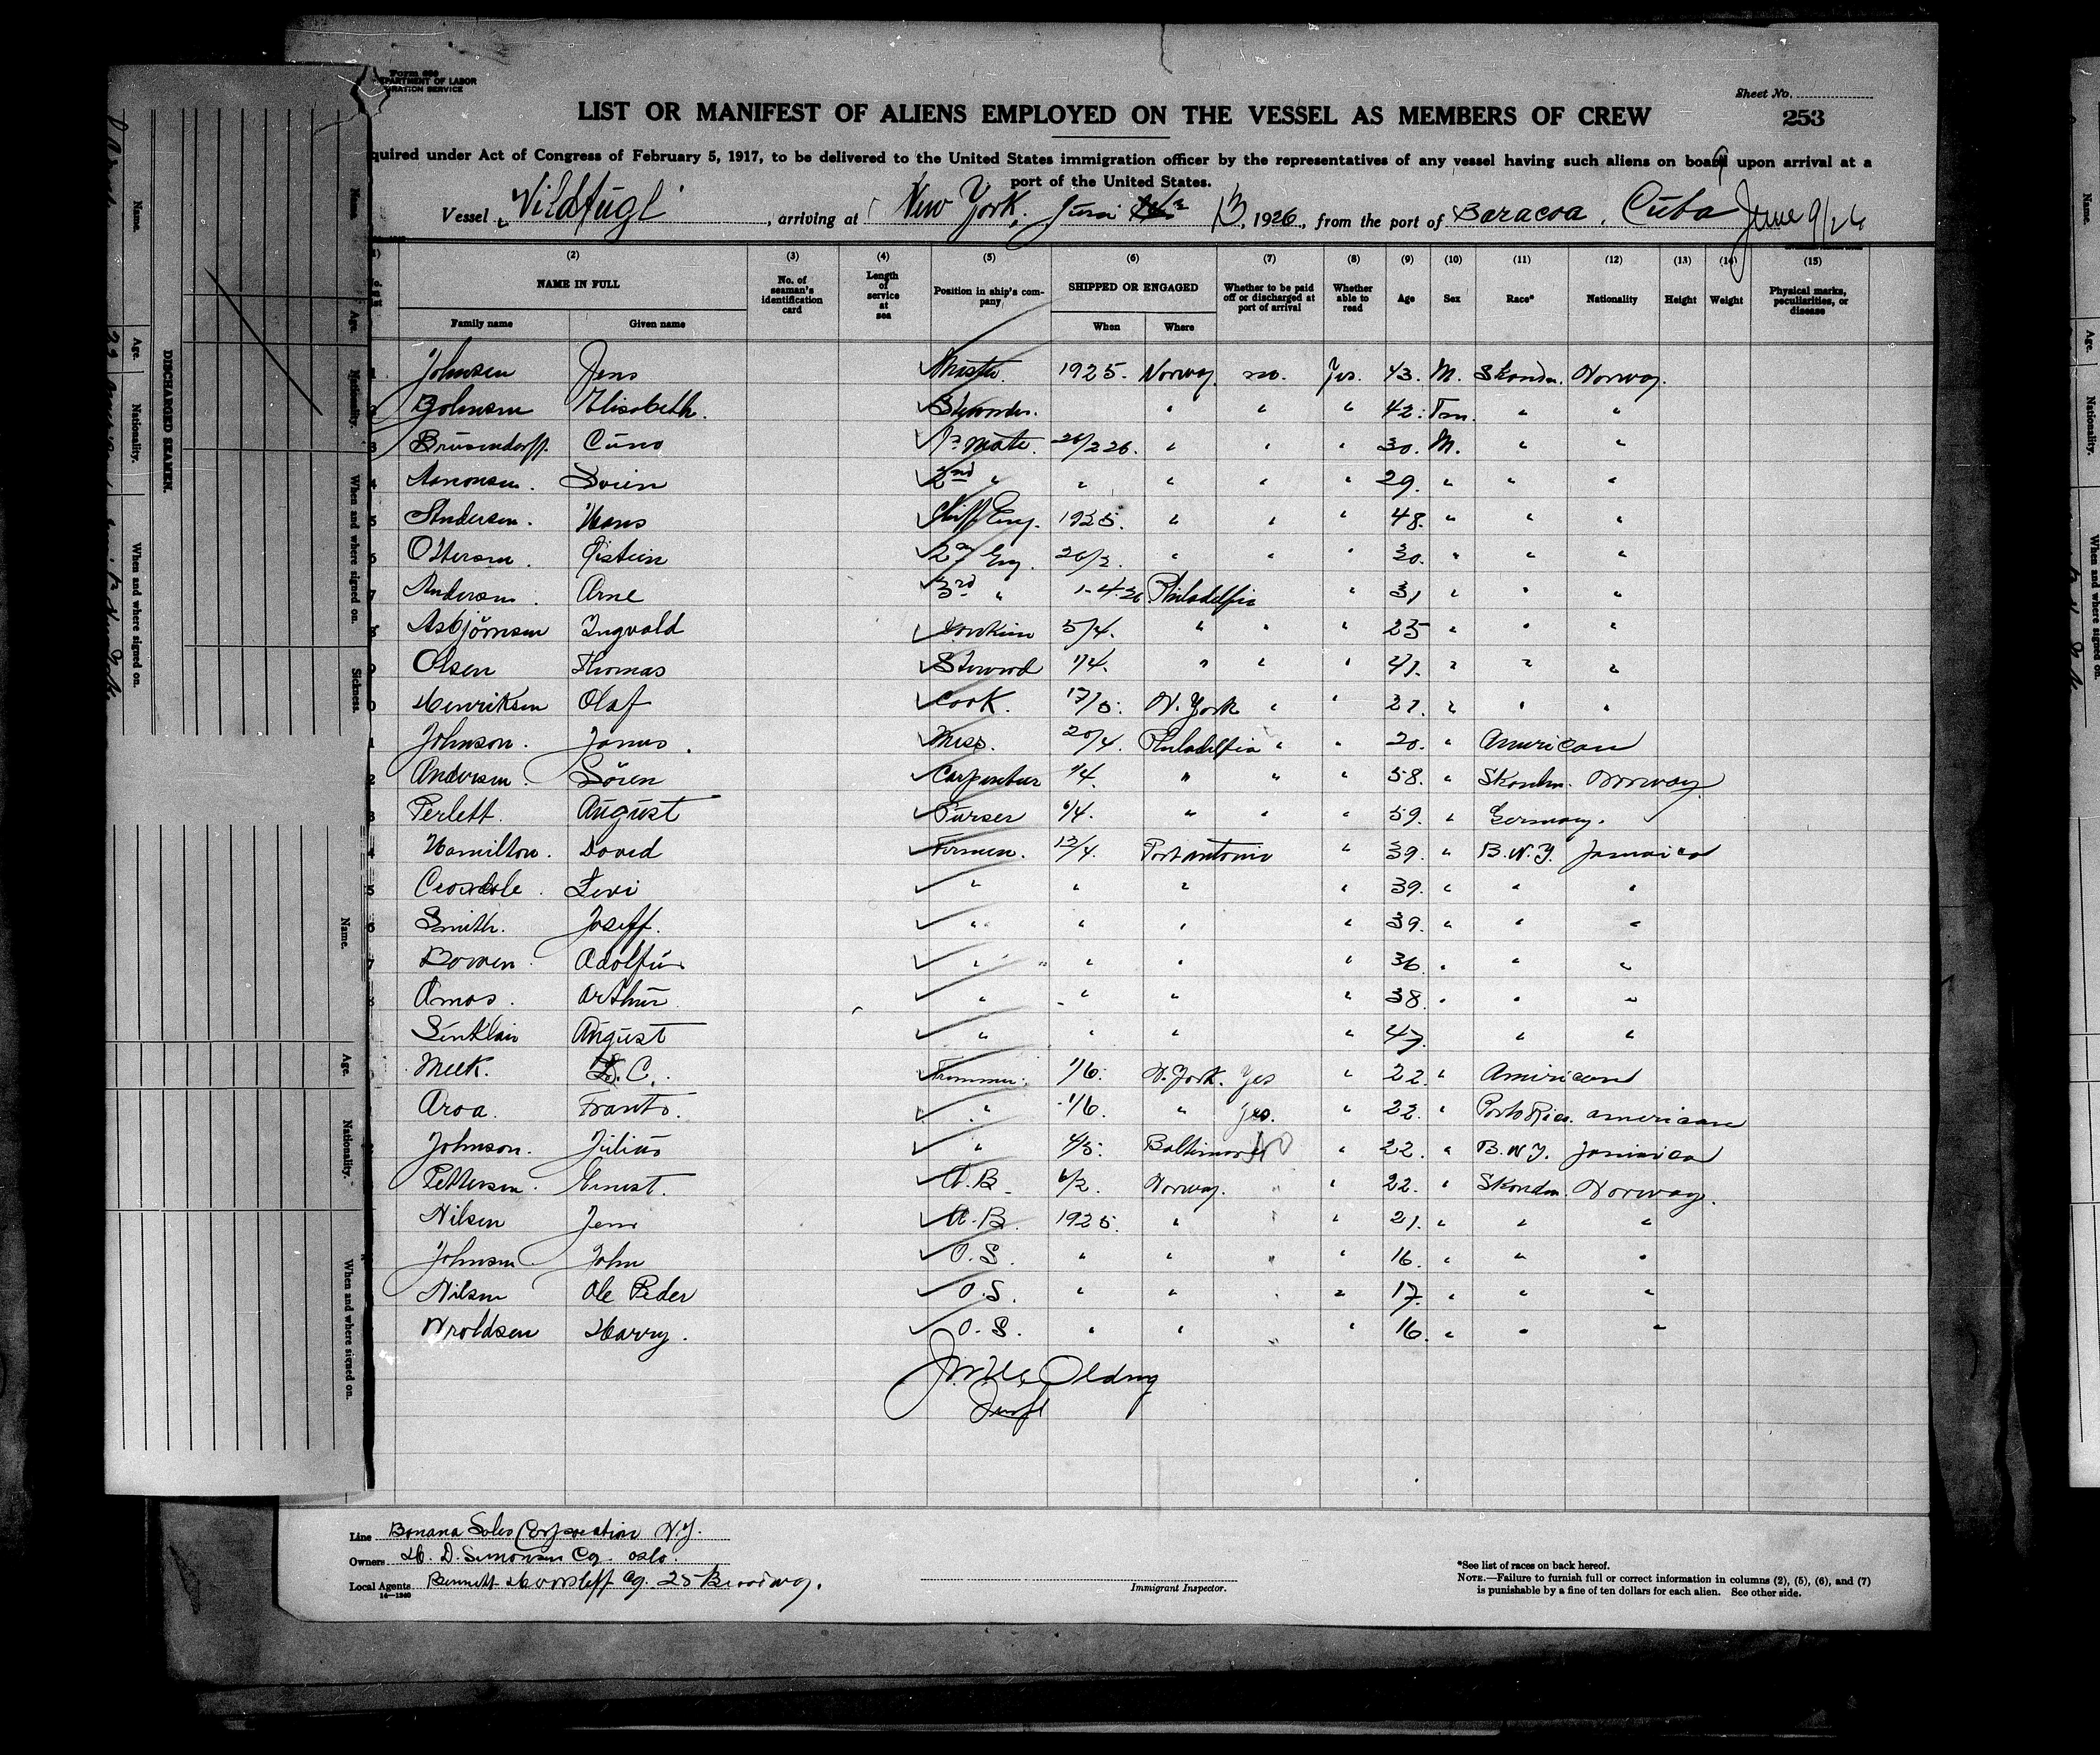 Form 689
DEPARTMENT OF LABOR
IMMIGRATION SERVICE
Sheet No.
253
LIST OR MANIFEST OF ALIENS EMPLOYED ON THE VESSEL AS MEMBERS OF CREW
quired under Act of Congress of February 5, 1917, to be delivered to the United States immigration officer by the representatives of any vessel having such aliens on board upon arrival at a
port of the United States.
Vessel "Vildfugl", arriving at New York, Juni 13, 1926, from the port of Baracoa, Cuba June 9/26
(2) (3) (4) (5) (6) (7) (8) (9) (10) (11) (12) (13) (14) (15)
NAME IN FULL No. of seaman's identification card Length of service at sea Position in ship's company SHIPPED OR ENGAGED Whether to be paid off or discharged at port of arrival Whether able to read Age Sex Race* Nationality Height Weight Physical marks, peculiarities, or disease
Family name Given name When Where
1 Johnsen Jens Master 1925. Norway no. Yes. 43. M. Skandn. Norway.
2 Johnsen Elisabeth. Stewardes. " " " 42. " "
3 Brusendorff. Cuno 1s Mate. 26/2 26. " " " 30. M. " "
4 Aanonsen. Svein 2nd " " " " " 29. " " "
5 Andersen. Hans Chiff Eng. 1925. " " " 48. " " "
6 Ottersen. Øistein 2nd Eng. 26/2. " " " 30. " " "
7 Andersen. Arne 3rd " 1-4-26 Philadelfia " 31 " " "
8 Asbjörnsen Ingvald 5/4. " " " 25 " " "
9 Olsen Thomas Steward 1/4. " " " 41. " " "
0 Henriksen Olaf Cook. 17/5. N. York " " 21. " " "
1 Johnson. James. Mess. 20/4. Philadelfia " " 20. " American
2 Andersen. Sören Carpenter 1/4. " " " 58. " Skandn. Norway
3 Perlett. August Purser 6/4. " " " 59. " Germany.
4 Hamilton. David Firmen. 13/4. Port antonio " 39. " B.W.I. Jamaica
5 Levi " " " " 39. " " "
6 Smith. Joseff. " " " " 39. " " "
7 Bowen Adolfus " " " " 36 " " "
8 Amos. Arthur " " " " 38. " " "
Sinklair August " " " " 47. " "
Meek. C. Trimmer. 1/6. N. York. Yes " 22. " American
Aroa. Frants. " 1/6. " Yes. " 22. " Porto Rico. american
Johnson. Julius " 4/5. Baltimore NO " 22. " B.W.I. Jamaica
Pettersen. Ernest. A.B. 6/2. Norway. " " 22. " Skandn. Norway.
Nilsen Jens A.B. 1925. " " " 21. " " "
Johnsen John O.S. " " " " 16. " " "
Nilsen Ole Peder O.S. " " " " 17. " " "
Wroldsen Harry. O.S. " " " " 16. " " "
Line Banana Sales Corporation N.Y.
Owners H. D. Simonsen Co. Oslo.
Local Agents Bennett Co. 25 Broadway.
14—1240
Immigrant Inspector.
*See list of races on back hereof.
NOTE.—Failure to furnish full or correct information in columns (2), (5), (6), and (7)
is punishable by a fine of ten dollars for each alien. See other side.
DISCHARGED SEAMEN.
Name. Age. Nationality. When and where signed on.
Name Age. Nationality. When and where signed on. Sickness.
Name. Age. Nationality. When and where signed on.
Name. Age. Nationality. When and where signed on.